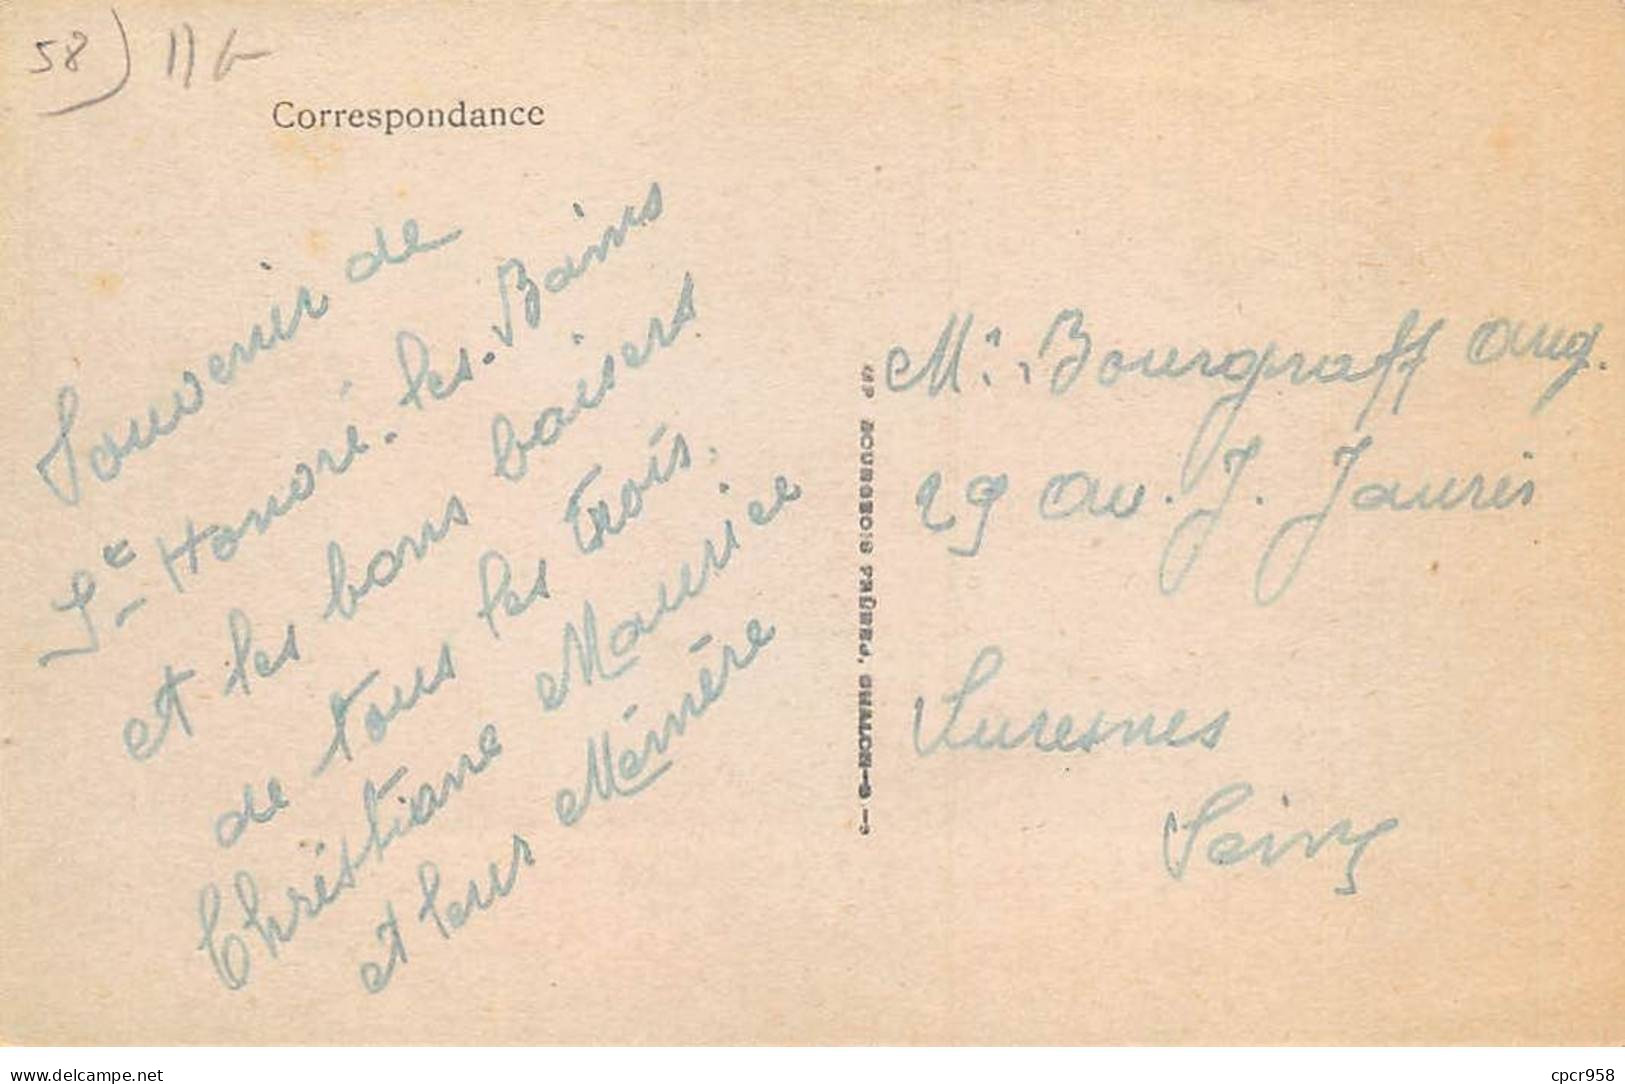 58) 116
Correspondance
Souvenir de
St Honoré-les-Bains
et les bons baisers
de tous les trois.
Christiane Maurice
et leur Mémère
IMP BOURGEOIS FRÈRES, CHALON-S-S
Mr Bourgraff Aug.
29 av. J. Jaurès
Suresnes
Seine
delcampe.net
cpcr958